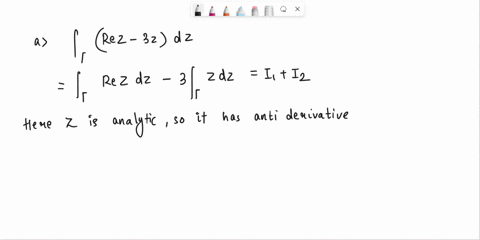 a> ∫_Γ (Re z - 3z) dz
= ∫_Γ Re z dz - 3 ∫_Γ z dz = I₁ + I₂
Here z is analytic, so it has anti derivative